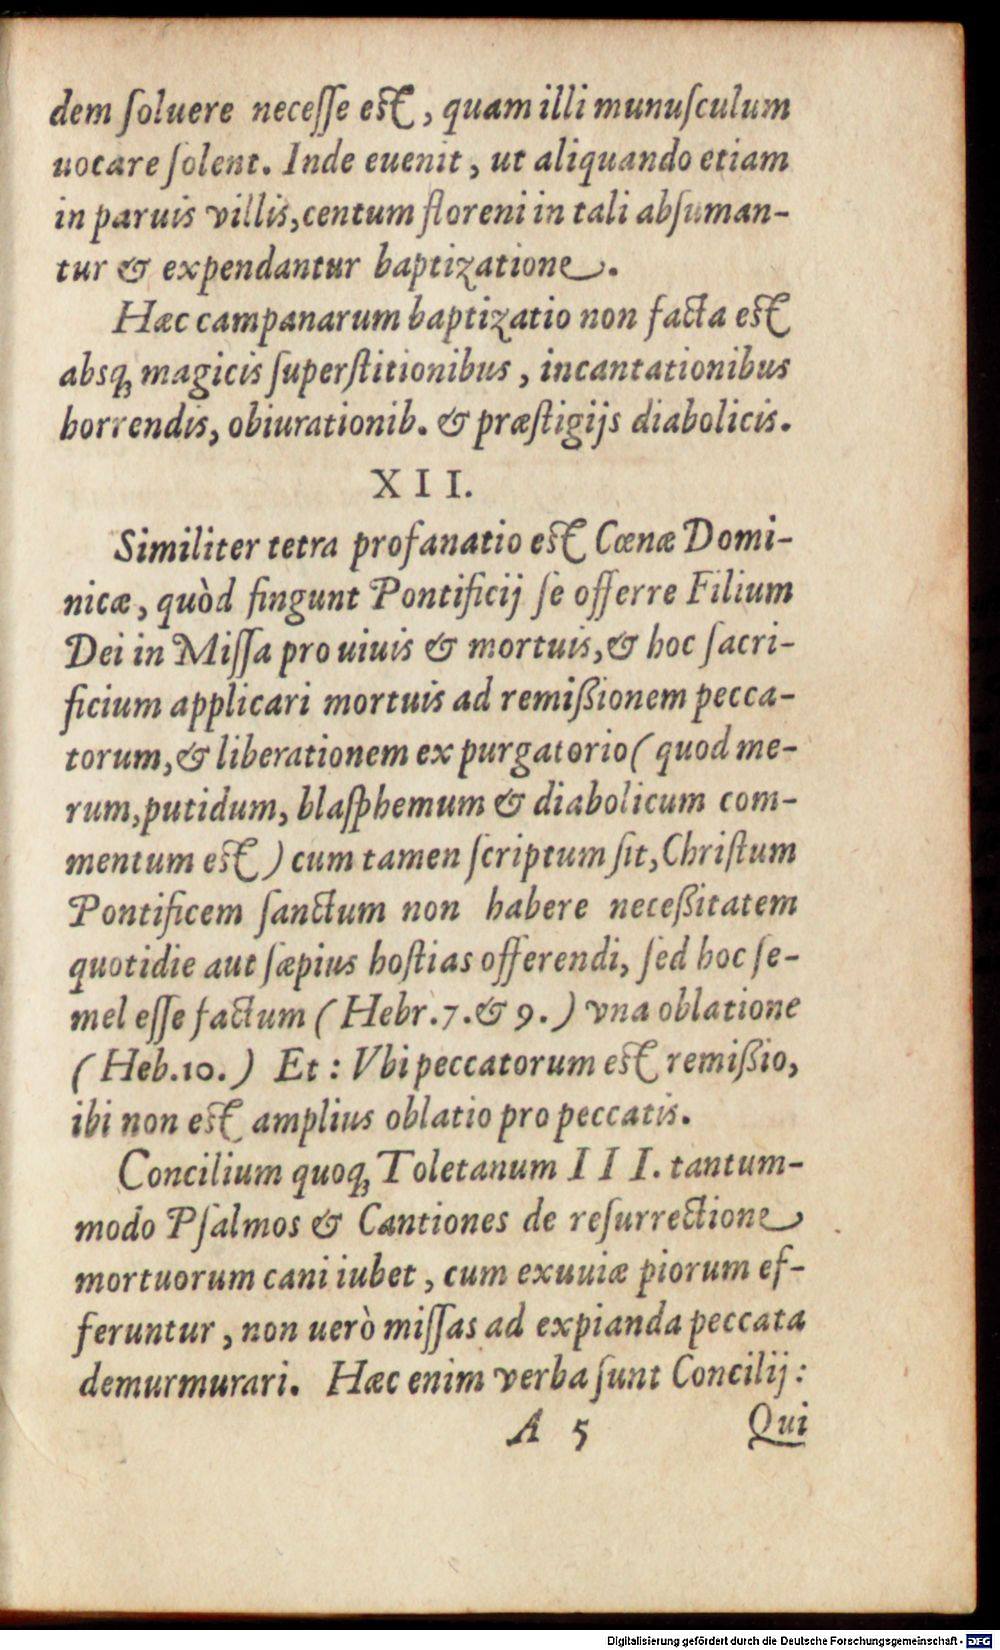 dem ſoluere neceſſe eſt, quam illi munuſculum
uocare ſolent. Inde euenit, ut aliquando etiam
in paruis villis, centum floreni in tali abſuman-
tur & expendantur baptizatione.
Hæc campanarum baptizatio non facta eſt
absq; magicis ſuperſtitionibus, incantationibus
horrendis, obiurationib. & præſtigijs diabolicis.
XII.
Similiter tetra profanatio eſt Cœnæ Domi-
nicæ, quòd fingunt Pontificij ſe offerre Filium
Dei in Miſſa pro uiuis & mortuis, & hoc ſacri-
ficium applicari mortuis ad remißionem pecca-
torum, & liberationem ex purgatorio (quod me-
rum, putidum, blaſphemum & diabolicum com-
mentum eſt) cum tamen ſcriptum ſit, Chriſtum
Pontificem ſanctum non habere neceßitatem
quotidie aut ſæpius hoſtias offerendi, ſed hoc ſe-
mel eſſe factum (Hebr. 7. & 9.) vna oblatione
(Heb. 10.) Et: Vbi peccatorum eſt remißio,
ibi non eſt amplius oblatio pro peccatis.
Concilium quoq; Toletanum III. tantum-
modo Pſalmos & Cantiones de reſurrectione
mortuorum cani iubet, cum exuuiæ piorum ef-
feruntur, non uerò miſſas ad expianda peccata
demurmurari. Hæc enim verba ſunt Concilij:
A 5 Qui
Digitalisierung gefördert durch die Deutsche Forschungsgemeinschaft - DFG